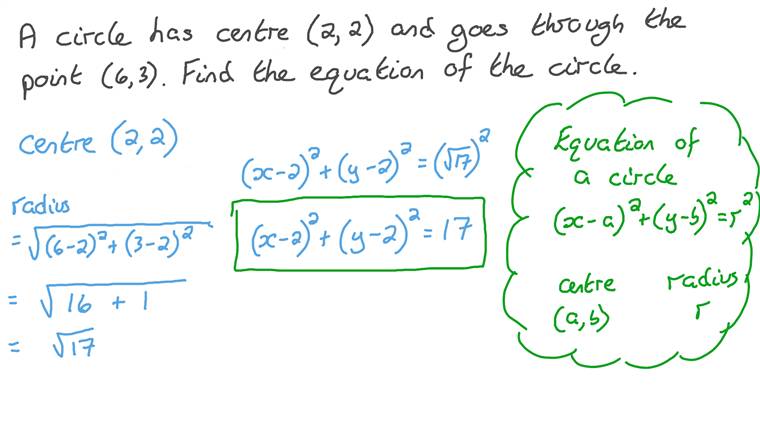 A circle has centre (2,2) and goes through the
point (6,3). Find the equation of the circle.
centre (2,2)
radius
= √((6-2)² + (3-2)²)
= √(16 + 1)
= √17
(x-2)² + (y-2)² = (√17)²
(x-2)² + (y-2)² = 17
Equation of
a circle
(x-a)² + (y-b)² = r²
centre radius
(a,b) r